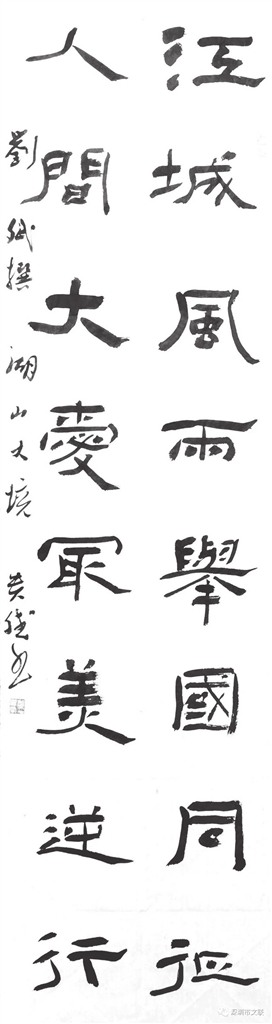 江城風雨舉國同征
人間大愛冣美逆行
劉斌撰 湖山 境 黄
芜湖市文联